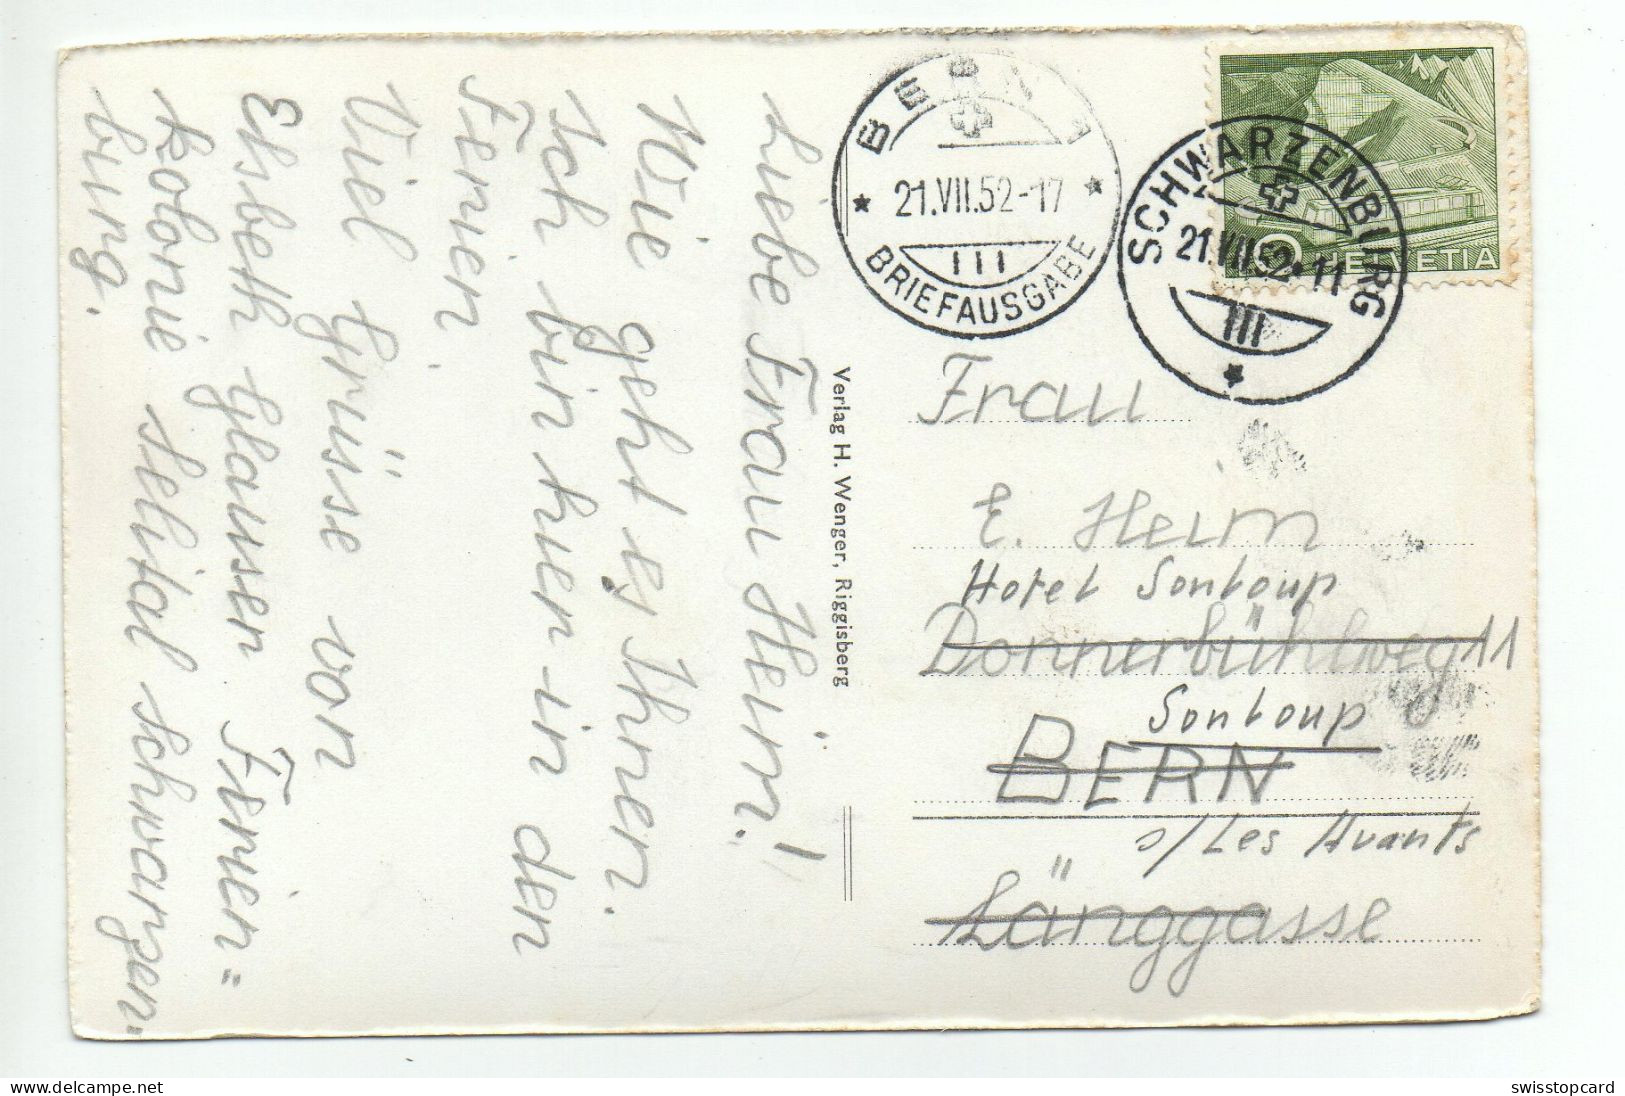 Liebe Frau Heim!
Wie geht es Ihnen.
Ich bin hier in den
Ferien
Viel Grüsse von
Elsbeth Glausen Ferien=
kolonie Selital Schwarzen=
burg.
Verlag H. Wenger, Riggisberg
BERN 1
21.VII.52-17
BRIEFAUSGABE
SCHWARZENBURG
21.VII.52-11
HELVETIA
Frau
E. Heim
Hotel Sonloup
Donnerbühlweg 11
Sonloup
BERN
s/Les Avants
Länggasse
delcampe.net
swisstopcard